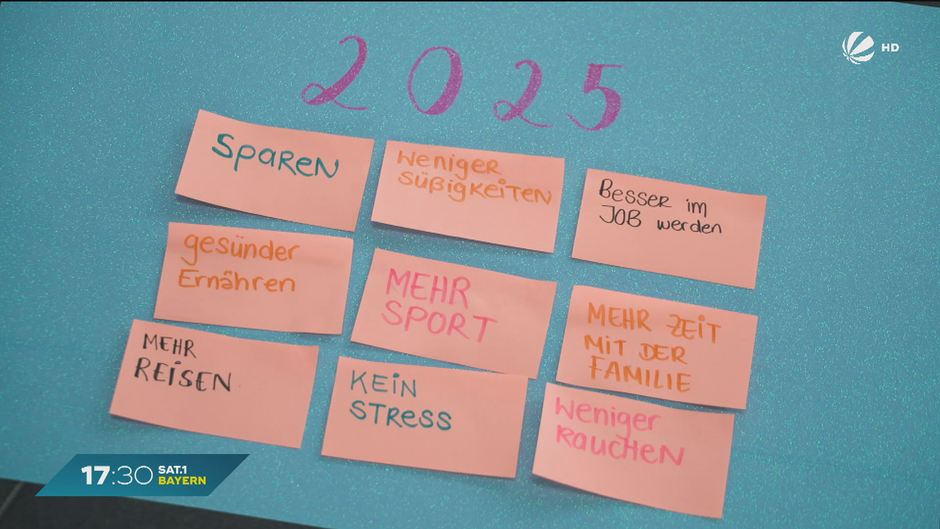 HD
2025
Sparen
Weniger
Süßigkeiten
Besser im
Job werden
gesünder
Ernähren
MEHR
SPORT
MEHR ZEIT
MIT DER
FAMILIE
MEHR
REISEN
KEIN
STRESS
Weniger
Rauchen
17:30 SAT.1
BAYERN